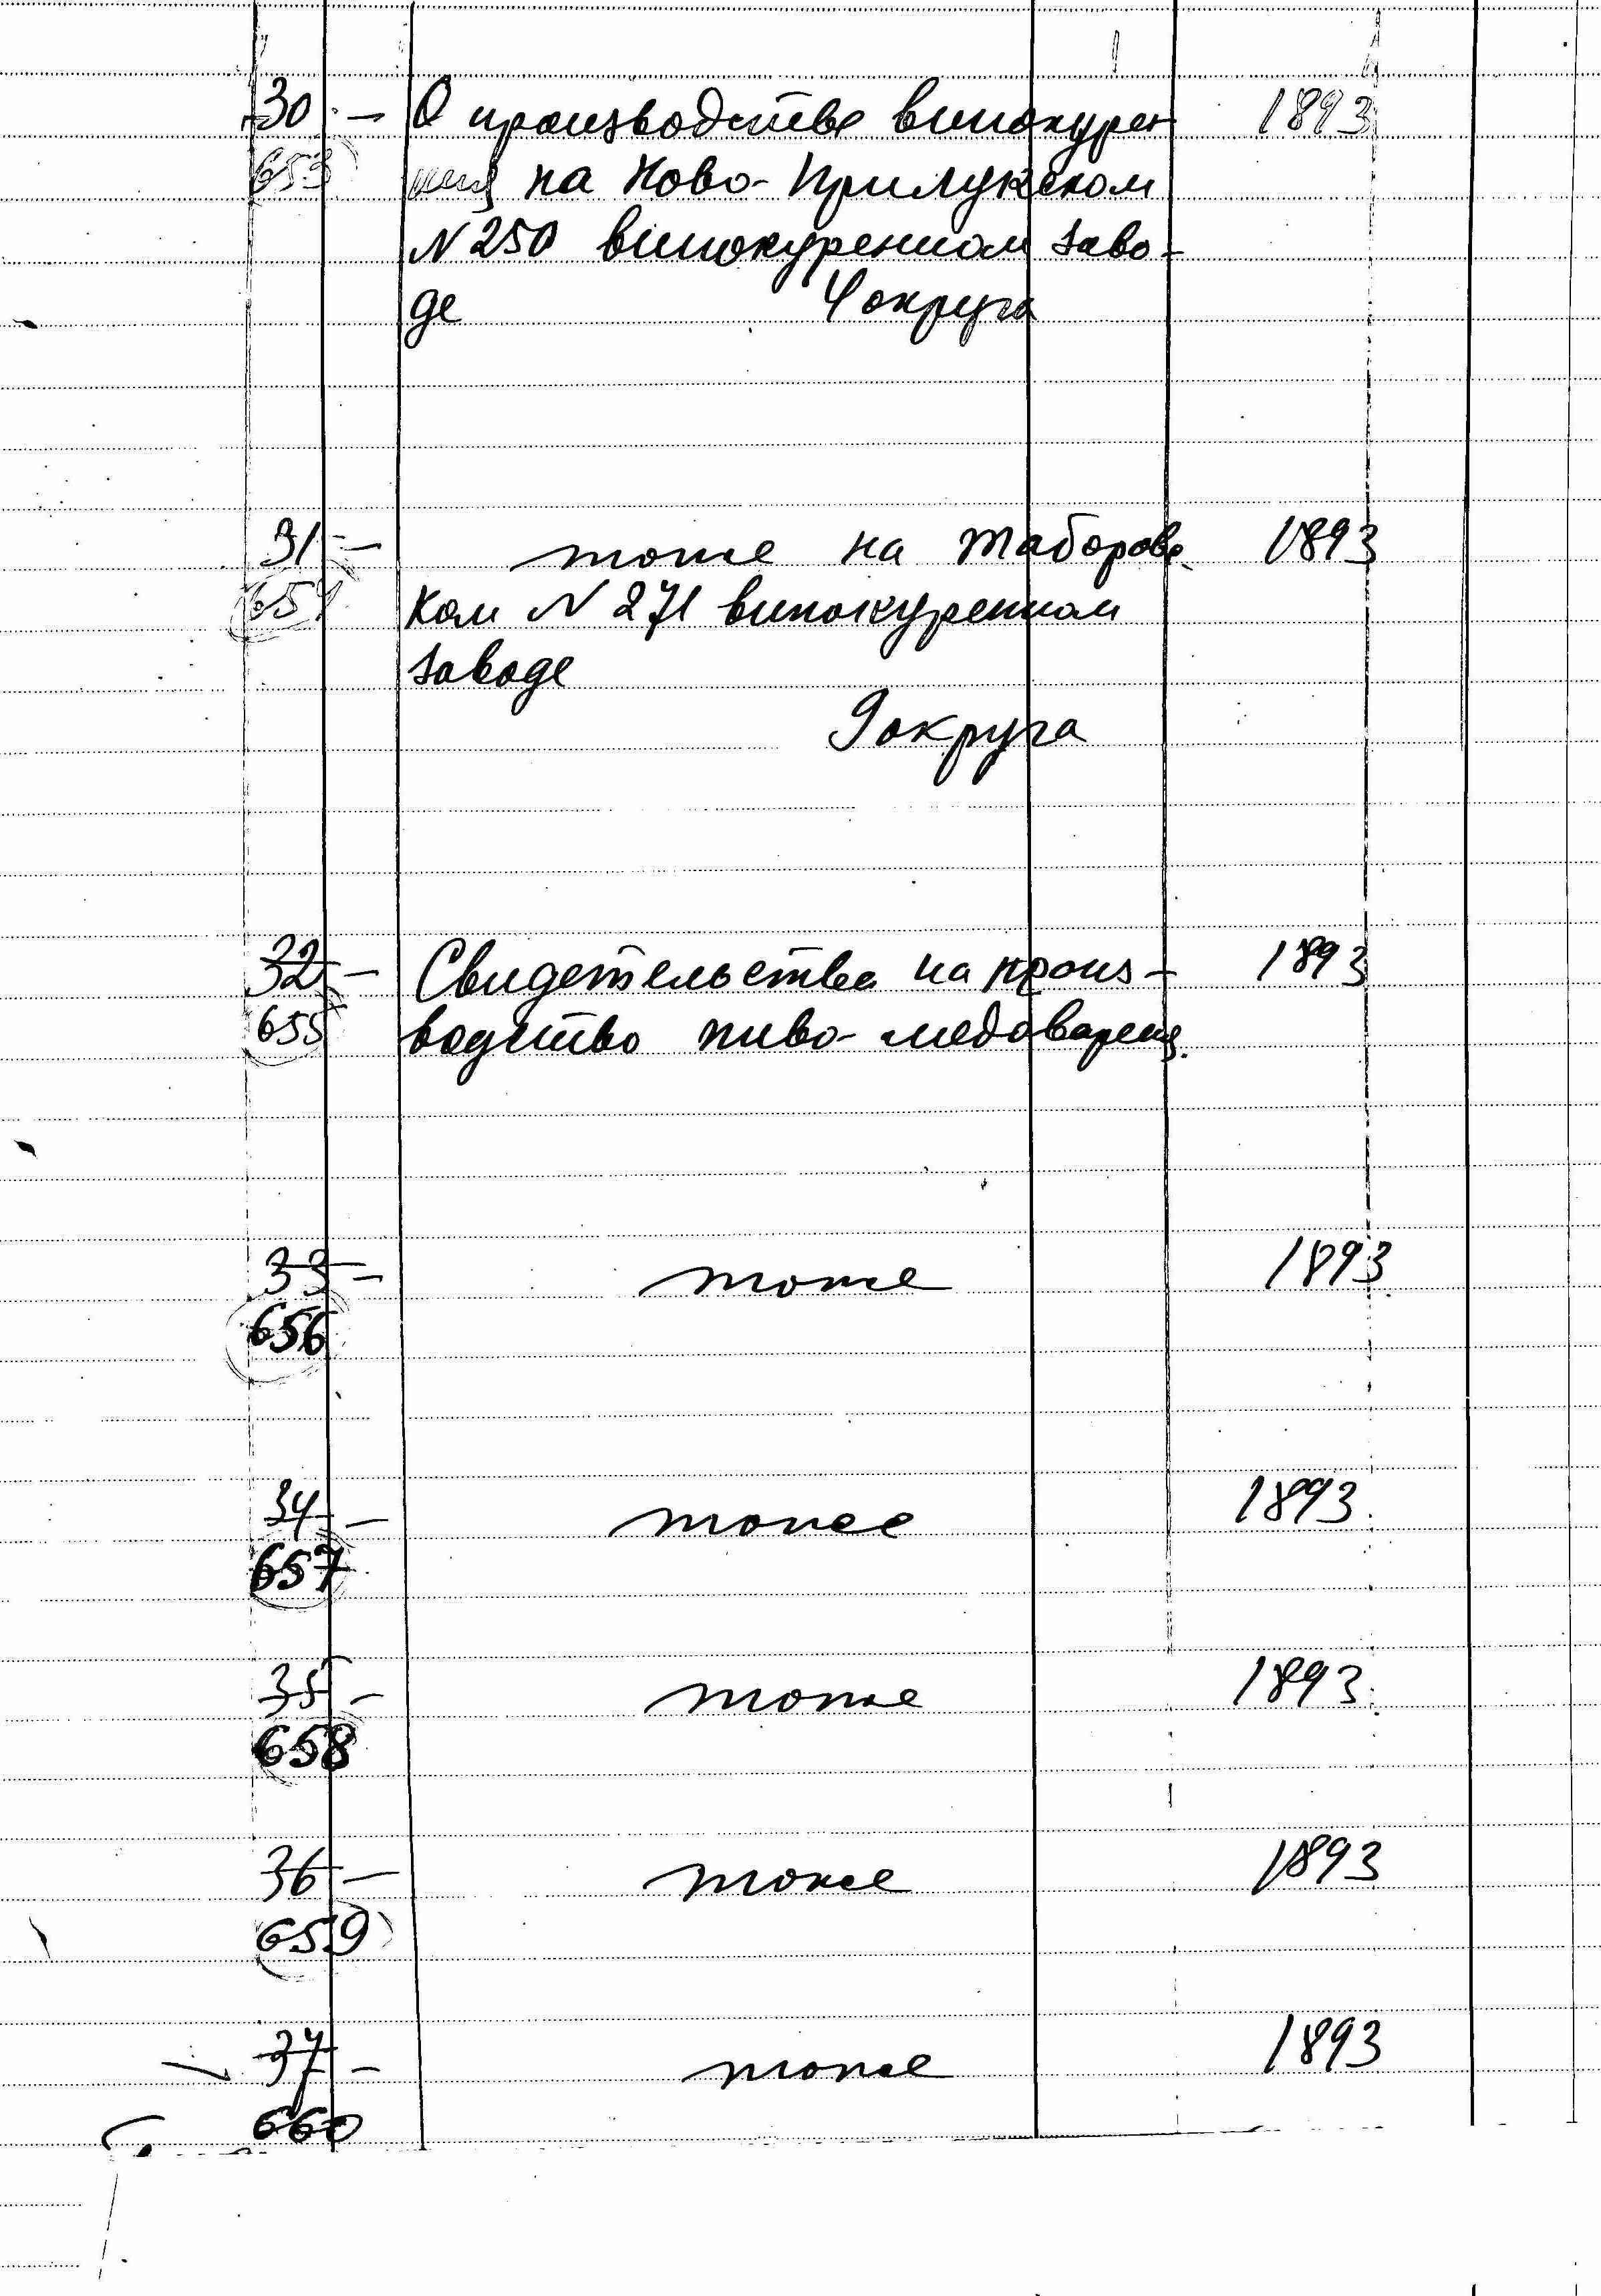 30 — О производстве винокурен 1893
653 ния на Ново-Прилукском
N 250 винокуренном заво-
де 4 округа
31 — тоже на Таборовс 1893
654 ком N 271 винокуренном
заводе
9 округа
32 — Свидетельства на произ- 1893
655 водство пиво-медоварения.
33 — тоже 1893
656
34 — тоже 1893
657
35 — тоже 1893
658
36 — тоже 1893
659
37 — тоже 1893
660